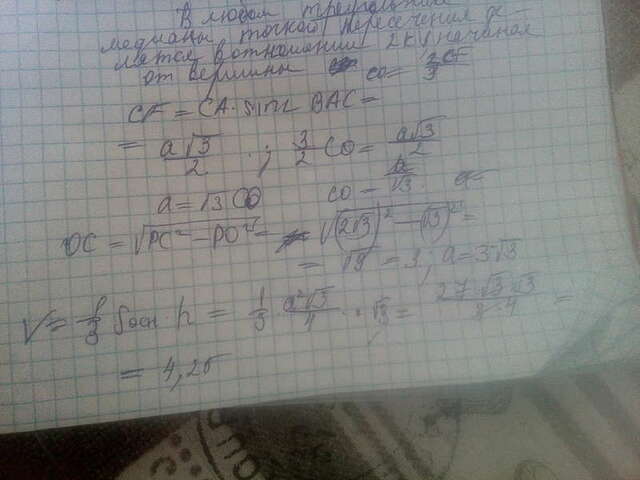 В любом треугольнике
медианы точкой пересечения де-
лятся в отношении 2 к 1 начиная
от вершины CO = 2/3 CF
CF = CA · sin∠BAC =
= a√3/2 ; 3/2 CO = a√3/2
a = √3 CO CO = a/√3
OC = √(PC² - PO²) = √((2√3)² - (√3)²) =
= √9 = 3; a = 3√3
V = 1/3 Sосн · h = 1/3 · a²√3/4 · √3 = 27·√3·√3/3·4 =